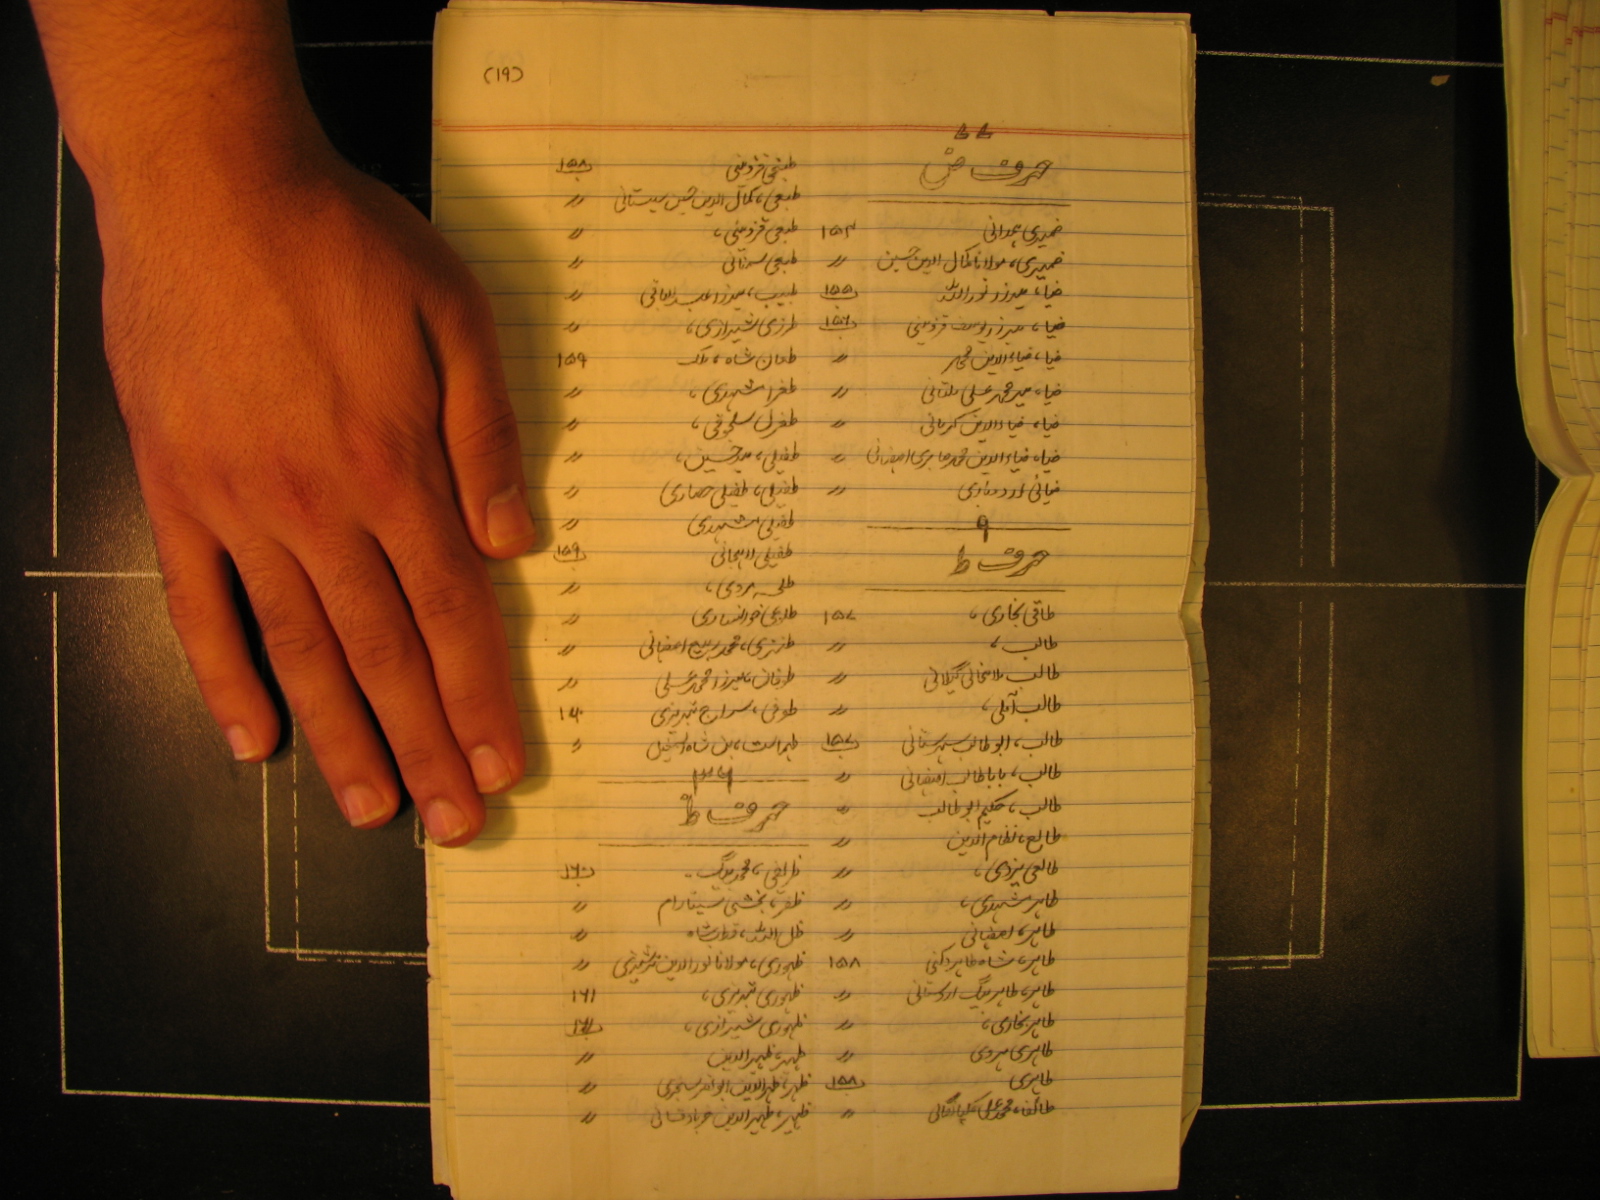 (۱۹)
۴۴
حرف ض
ضمیری همدانی ۱۵۴
ضمیری، مولانا کمال الدین حسین 〃
ضیاء، میرزا نورالله ۱۵۵ب
ضیاء، میرزا یوسف قزوینی ۱۵۶ب
ضیاء، ضیاءالدین محمد 〃
ضیاء، میر محمد علی ملتانی 〃
ضیاء، ضیاءالدین کرمانی 〃
ضیاء، ضیاءالدین محمد اصفهانی 〃
ضیائی اردوبادی 〃
۹
حرف ط
طاقی بخاری، ۱۵۷
طالب، 〃
طالب گیلانی 〃
طالب آملی، 〃
طالب، ابوطالب ۱۵۷ب
طالب، بابا طالب اصفهانی 〃
طالب، حکیم ابوطالب 〃
طالع، نظام الدین 〃
طالعی یزدی، 〃
طاهر مشهدی، 〃
طاهر، اصفهانی 〃
طاهر، شاه طاهر دکنی ۱۵۸
طاهر، طاهر بیگ 〃
طاهر بخاری، 〃
طاهری هروی 〃
طاهری ۱۵۸ب
طائف، محمد علی 〃
طبخی قزوینی ۱۵۸ب
طبعی، کمال الدین سیستانی 〃
طبعی قزوینی، 〃
طبعی 〃
طبیب، میرزا عبدالباقی 〃
طرزی شیرازی، 〃
طغان شاه، ملک ۱۵۹
طغرا مشهدی، 〃
طغرل سلجوقی، 〃
طفیلی، میر حسین، 〃
طفیلی، طفیلی حصاری 〃
طفیلی مشهدی 〃
طفیلی لاهیجانی ۱۵۹ب
طلحه هروی، 〃
طلوعی خوانساری 〃
طنزی، محمد اصفهانی 〃
طوفان، میرزا محمد علی 〃
طوفی، سراج تبریزی ۱۶۰
طهماسب، بن شاه اسمعیل 〃
۳۶
حرف ظ
ظرافتی، محمد بیگ ۱۶۰ب
ظفر، بخشی سیتارام 〃
ظل الله، قطب شاه 〃
ظهوری، مولانا نورالدین ترشیزی 〃
ظهوری تبریزی، ۱۶۱
ظهوری شیرازی، ۱۶۱ب
ظهیر، ظهیرالدین 〃
ظهیر، ظهیرالدین ابونصر سنجری 〃
ظهیر، ظهیرالدین 〃